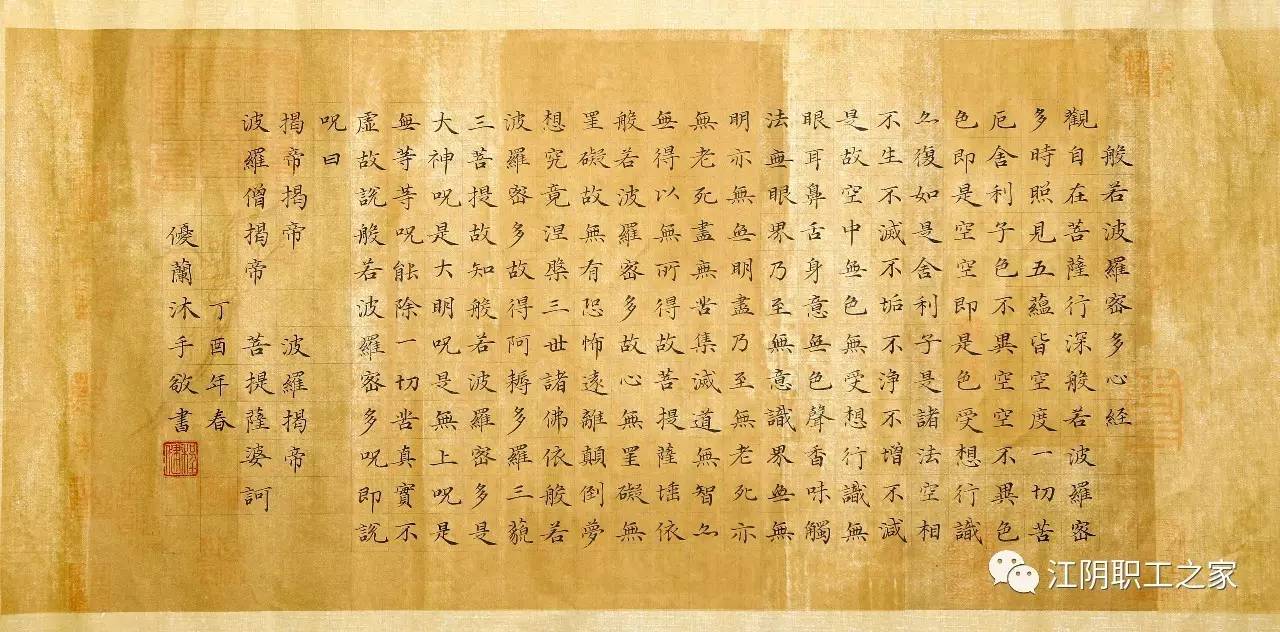 般若波羅密多心経
觀自在菩薩行深般若波羅密
多時照見五蘊皆空度一切苦
厄舍利子色不異空空不異色
色即是空空即是色受想行識
亦復如是舍利子是諸法空相
不生不滅不垢不浄不增不減
是故空中無色無受想行識無
眼耳鼻舌身意無色聲香味觸
法無眼界乃至無意識界無無
明亦無無明盡乃至無老死亦
無老死盡無苦集滅道無智亦
無得以無所得故菩提薩埵依
般若波羅密多故心無罣礙無
罣礙故無有恐怖遠離顛倒夢
想究竟涅槃三世諸佛依般若
波羅密多故得阿耨多羅三藐
三菩提故知般若波羅密多是
大神呪是大明呪是無上呪是
無等等呪能除一切苦真實不
虛故說般若波羅密多呪即說
呪曰
揭帝揭帝 波羅揭帝
波羅僧揭帝 菩提薩婆訶
丁酉年春
優蘭沐手敬書
江阴职工之家